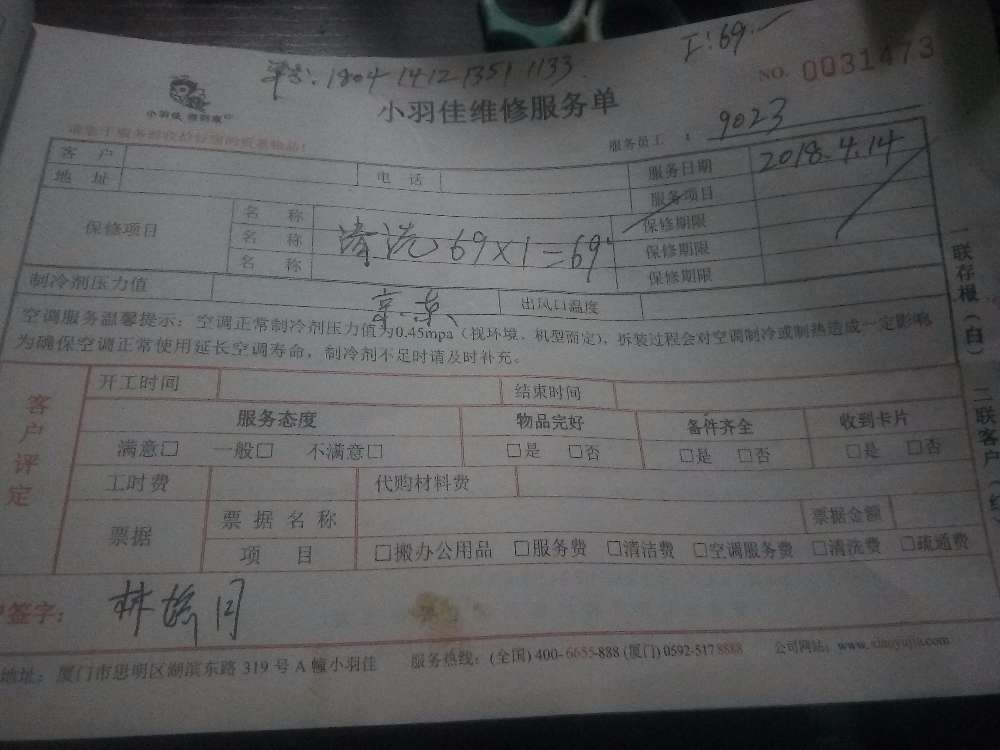 单号:1804 1412 1351 1133
工:69.—
NO. 0031473
小羽佳
小羽佳维修服务单
服务员工 : 9023
客户 电话 服务日期 2018.4.14
地址 服务项目
保修项目 名称 保修期限
名称 清洗 69×1=69 保修期限
名称 保修期限
制冷剂压力值 出风口温度
空调服务温馨提示:空调正常制冷剂压力值为0.45mpa(视环境、机型而定),拆装过程会对空调制冷或制热造成一定影响
为确保空调正常使用延长空调寿命,制冷剂不足时请及时补充。
客户评定
开工时间 结束时间
服务态度 物品完好 备件齐全 收到卡片
满意□ 一般□ 不满意□ □是 □否 □是 □否 □是 □否
工时费 代购材料费
票据 票据名称 票据金额
项目 □搬办公用品 □服务费 □清洁费 □空调服务费 □清洗费 □疏通费
签字:
地址:厦门市思明区湖滨东路 319 号 A 幢小羽佳 服务热线:(全国) 400-6655-888 (厦门) 0592-517 8888 公司网站:www.xiaoyujia.com
一联存根(白) 二联客户